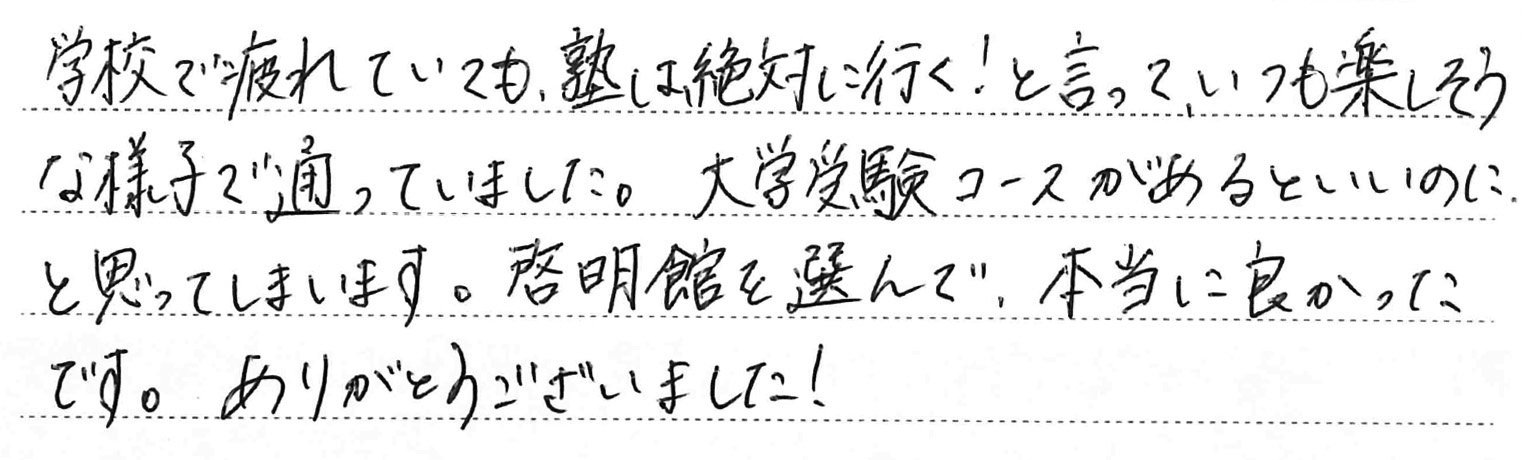 学校で疲れていても、塾は絶対に行く！と言って、いつも楽しそう
な様子で通っていました。大学受験コースがあるといいのに
と思ってしまいます。啓明館を選んで、本当に良かった
です。ありがとうございました！